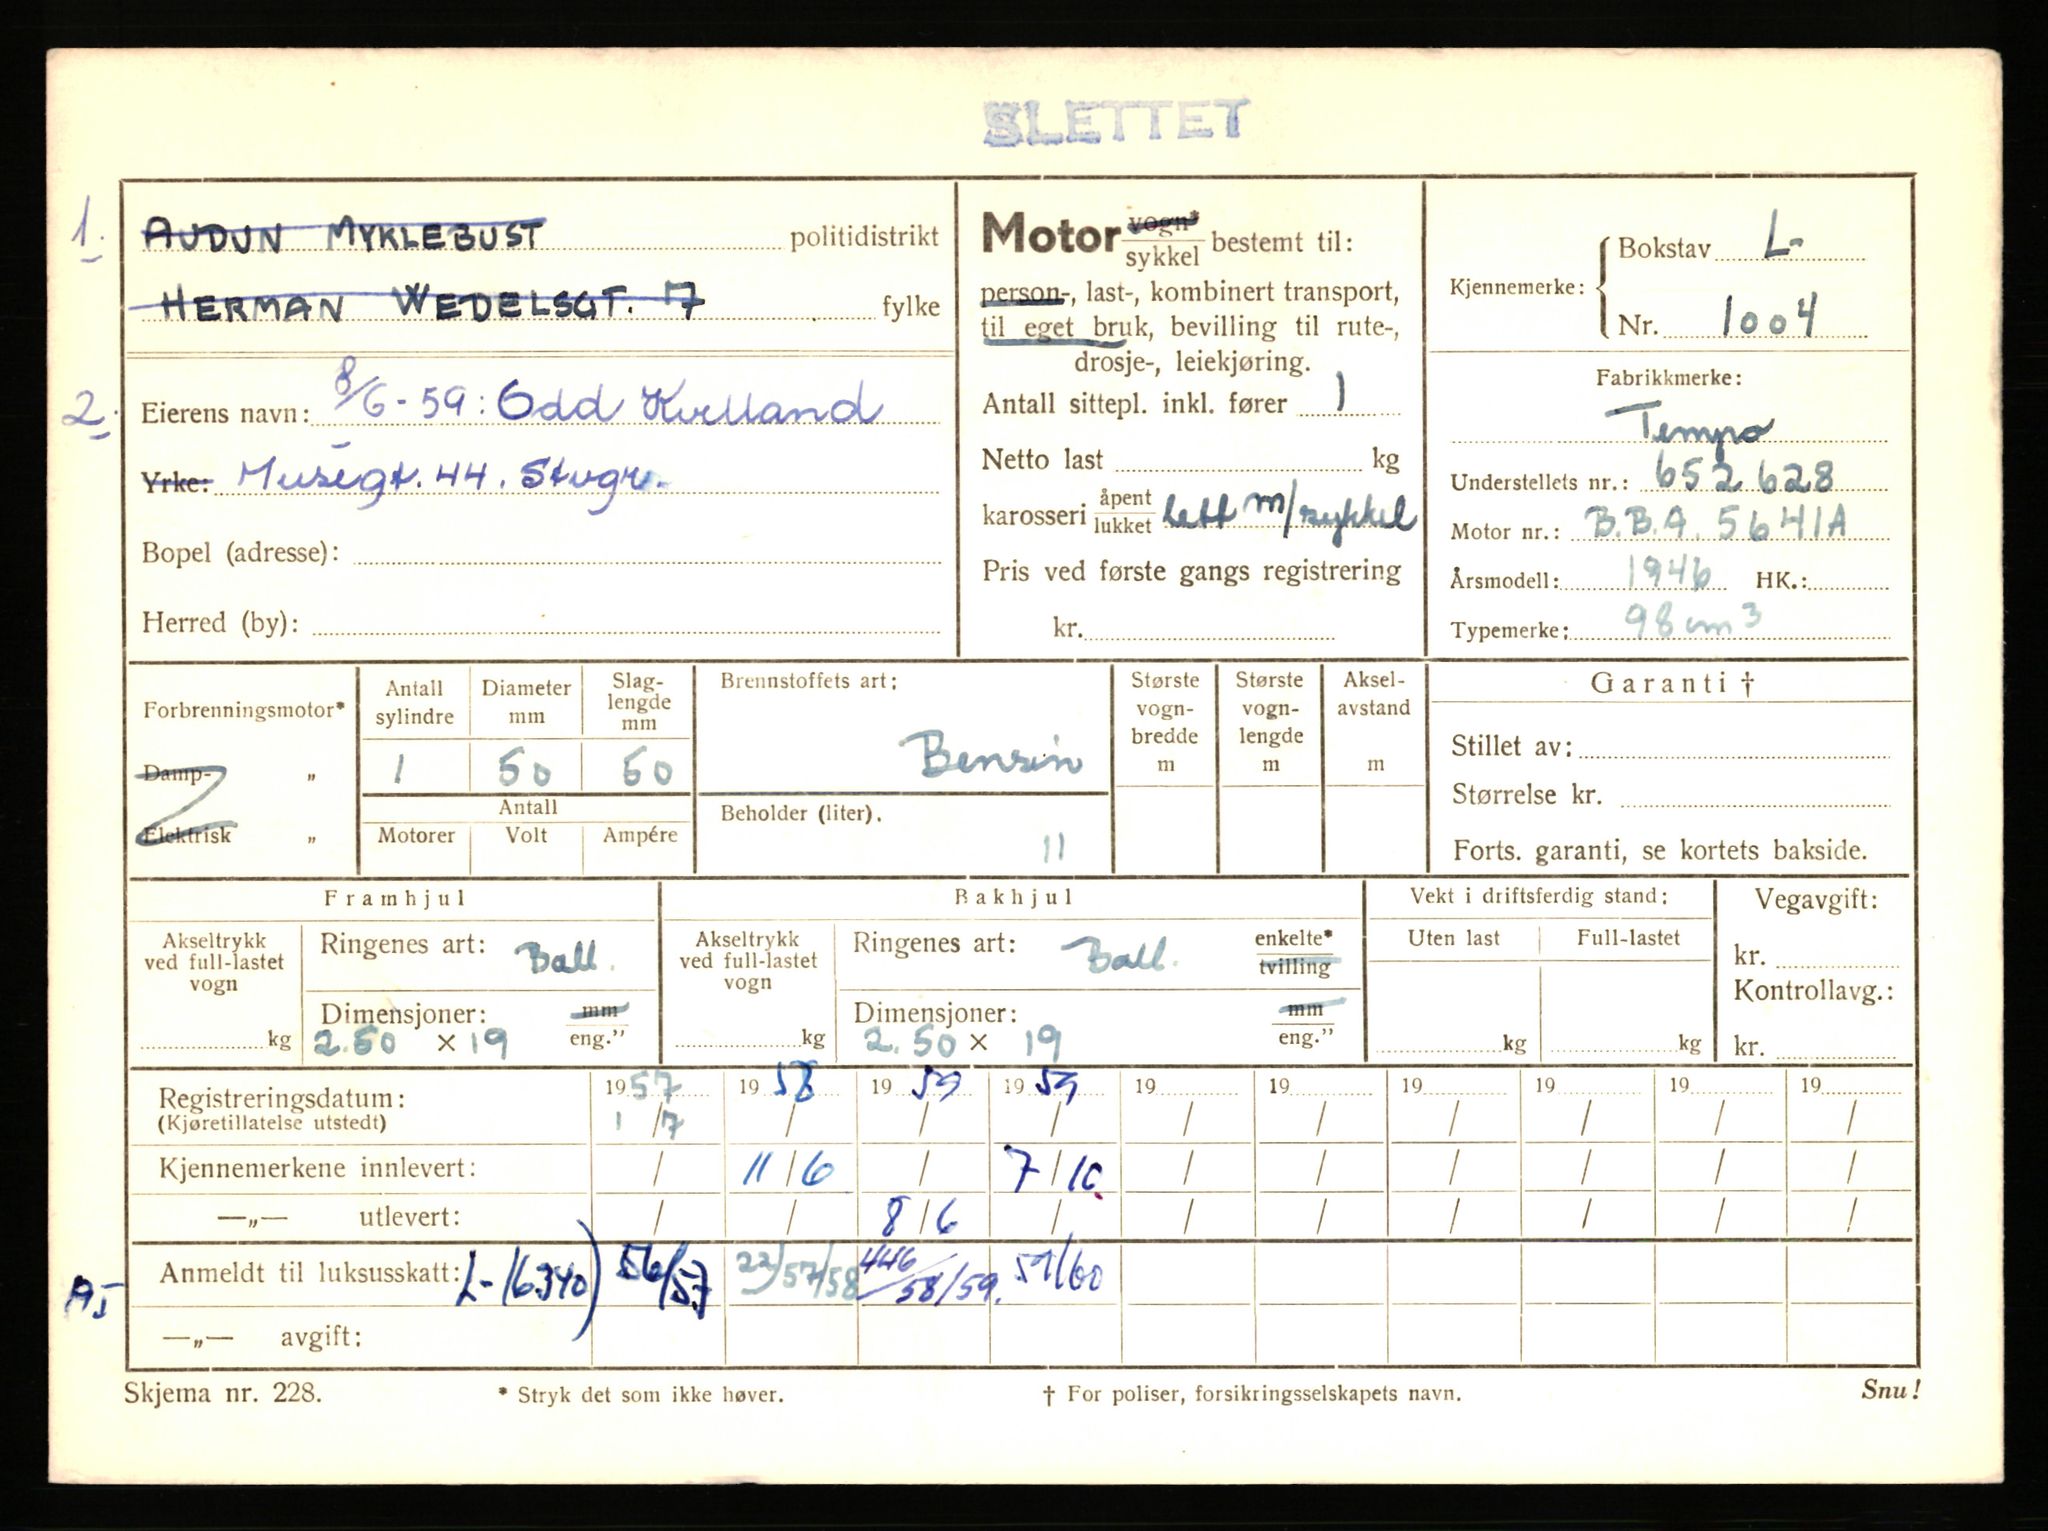 SLETTET
1. AUDUN MYKLEBUST politidistrikt
HERMAN WEDELSGT. 7 fylke
2. Eierens navn: 8/6-59: Odd Kvelland
Yrke: Muségt. 44. Stvgr.
Bopel (adresse):
Herred (by):
Motor vogn* sykkel bestemt til:
person-, last-, kombinert transport,
til eget bruk, bevilling til rute-,
drosje-, leiekjøring.
Antall sittepl. inkl. fører 1
Netto last kg
karosseri åpent lukket lett m/sykkel
Pris ved første gangs registrering
kr.
Kjennemerke: { Bokstav L-
Nr. 1004
Fabrikkmerke:
Tempo
Understellets nr.: 652628
Motor nr.: B.B.A. 5641A
Årsmodell: 1946 HK.:
Typemerke: 98 cm3
Forbrenningsmotor*
Damp- „
Elektrisk „
Antall sylindre
Diameter mm
Slag-lengde mm
1 50 50
Antall
Motorer Volt Ampére
Brennstoffets art:
Bensin
Beholder (liter).
11
Største vogn-bredde m
Største vogn-lengde m
Aksel-avstand m
Garanti †
Stillet av:
Størrelse kr.
Forts. garanti, se kortets bakside.
Framhjul
Akseltrykk ved full-lastet vogn
kg
Ringenes art: Ball.
Dimensjoner: mm
2.50 x 19 eng.”
Bakhjul
Akseltrykk ved full-lastet vogn
kg
Ringenes art: Ball. enkelte* tvilling
Dimensjoner: mm
2.50 x 19 eng.”
Vekt i driftsferdig stand:
Uten last Full-lastet
kg kg
Vegavgift:
kr.
Kontrollavg.:
kr.
Registreringsdatum: 1957 1958 1959 1959 19 19 19 19 19 19
(Kjøretillatelse utstedt) 1/7 / / / / / / / / /
Kjennemerkene innlevert: / 11/6 / 7/10. / / / / / /
—„— utlevert: / / 8/6 / / / / / / /
A5 Anmeldt til luksusskatt: L-16340) 56/57 22/57/58 446/58/59. 59/60
—„— avgift:
Skjema nr. 228. * Stryk det som ikke høver. † For poliser, forsikringsselskapets navn. Snu!